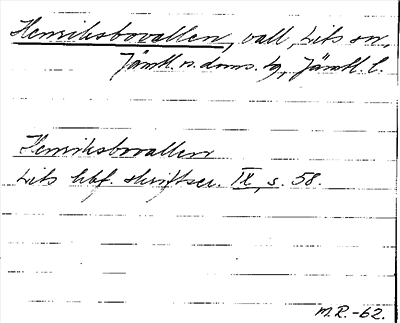 Henriksbovallen, vall, Lits sn,
Jämtl. n. doms. tg, Jämtl. l.
Henriksbovallen
Lits hbf. skriftser. IX, s. 58.
M.R.-62.